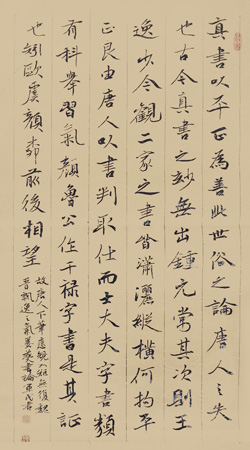 真書以平正為善此世俗之論唐人之失
也古今真書之妙無出鍾元常其次則王
逸少今觀二家之書皆瀟灑縱橫何拘平
正良由唐人以書判取仕而士大夫字書類
有科舉習氣顏魯公作干祿字書是其証
也矧歐虞顏柳前後相望
故唐人下筆應規入矩無復魏
晉飄逸之氣姜夔書論